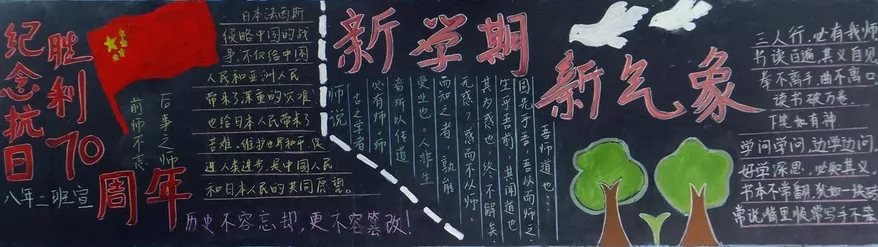 纪念抗日
胜利70
周年
八年一班宣
前师不忘
后事之师
日本法西斯
侵略中国的战
争,不仅给中国
人民和亚洲人民
带来了深重的灾难
也给日本人民带来了
苦难。维护世界和平,促
进人类进步,是中国人民
和日本人民的共同愿望。
历史不容忘却,更不容篡改!
新学期
新气象
师说
古之学者
必有师。师
者所以传道
受业也。人非生
而知之者,孰能
无惑?惑而不从师,
其为惑也,终不解矣。
生乎吾前,其闻道也
固先乎吾,吾从而师之
吾师道也
三人行,必有我师
书读百遍,其义自见
拳不离手,曲不离口
读书破万卷
下笔如有神
学问学问,边学边问
好学深思,必知其义
书本不常翻,犹如一块砖